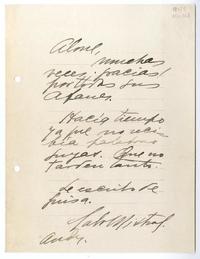 Alone,
muchas
veces: gracias!
por todos sus
afanes.
Hacía tiempo
ya que no reci-
bía palabras
suyas. Que no
tarden tanto.
Le escribo de
prisa.
Gab. Mistral